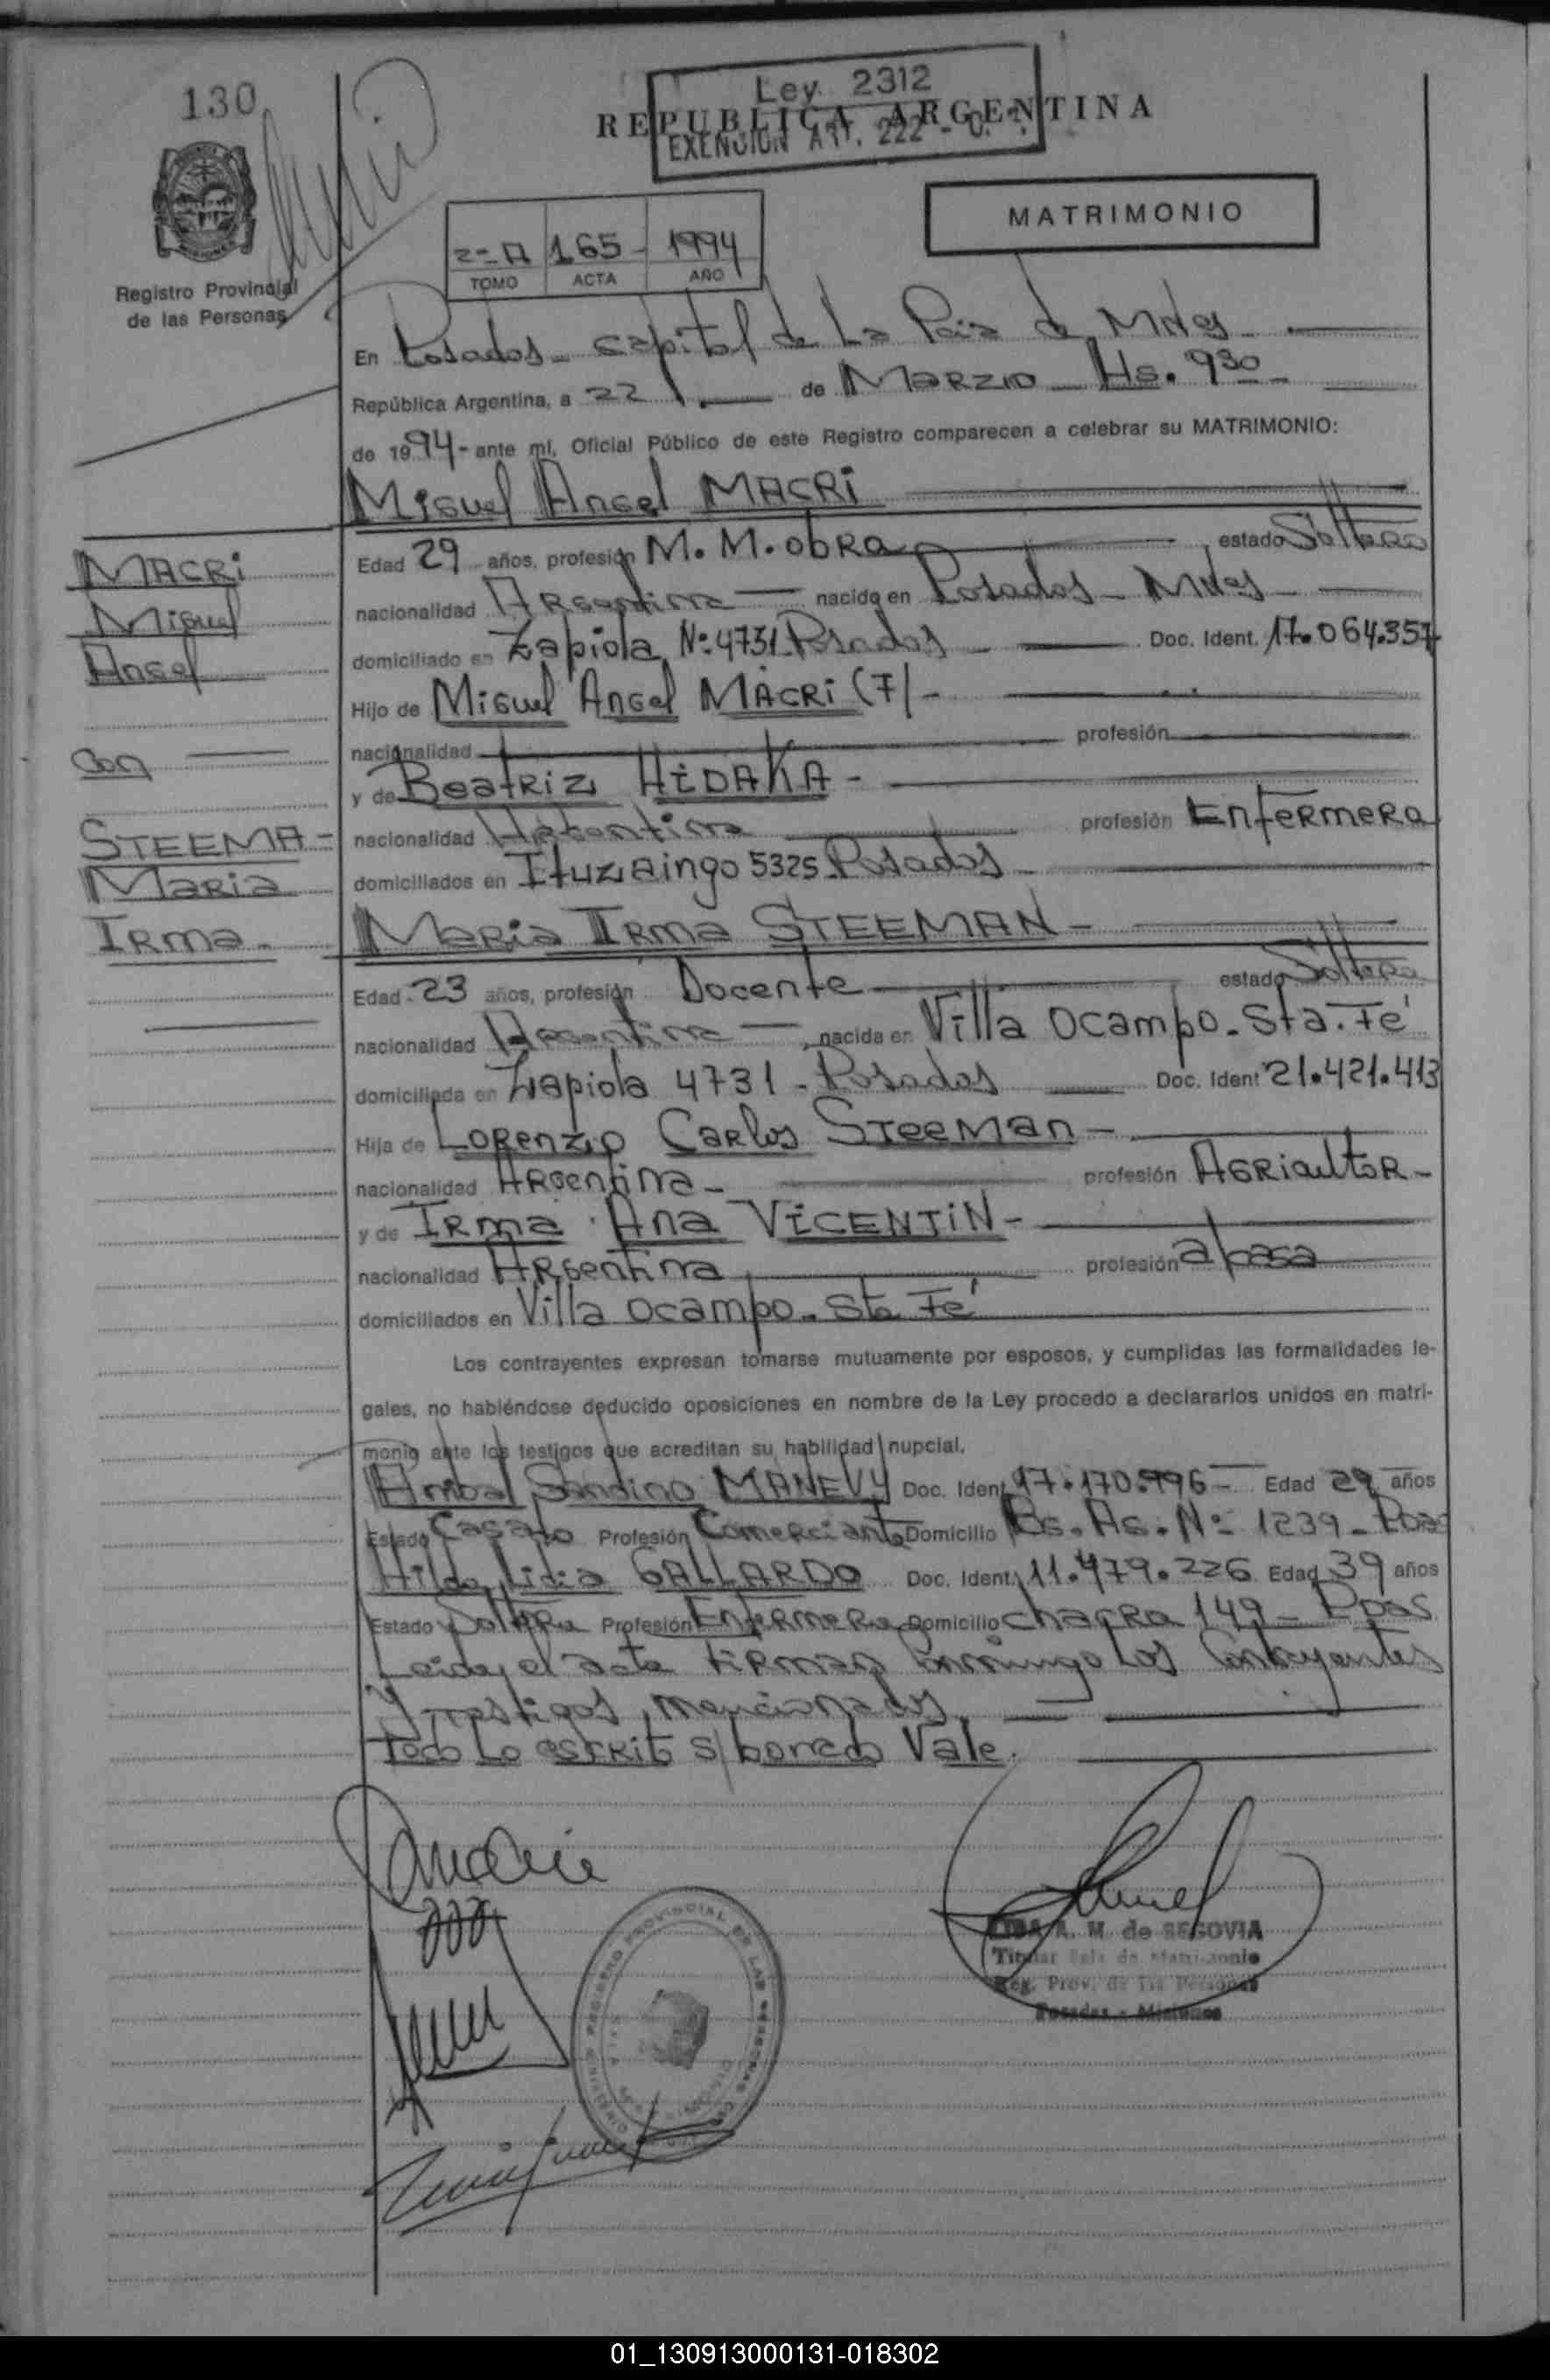 130
Ley 2312
REPUBLICA ARGENTINA
EXENCION Art. 222 -
MATRIMONIO
2=A 165- 1994
TOMO ACTA AÑO
Registro Provincial
de las Personas
En Posadas - capital de La Pcia de Mnes
República Argentina, a 22 de Marzo Hs. 930
de 1994- ante mí, Oficial Público de este Registro comparecen a celebrar su MATRIMONIO:
Miguel Angel MACRi
MACRi
Miguel
Angel
Con
STEEMA-
Maria
Irma.
Edad 29 años, profesión M. M. obra estado Soltero
nacionalidad Argentina nacido en Posadas - Mnes
domiciliado en Zapiola Nº 4731 Posadas Doc. Ident. 17.064.357
Hijo de Miguel Angel MACRi (7)-
nacionalidad profesión
y de Beatriz HiDAKA -
nacionalidad Argentina profesión Enfermera
domiciliados en Ituzaingo 5325 Posadas
Maria Irma STEEMAN -
Edad 23 años, profesión Docente estado Soltera
nacionalidad Argentina nacida en Villa Ocampo - Sta. Fé
domiciliada en Zapiola 4731 - Posadas Doc. Ident 21.421.413
Hija de Lorenzo Carlos Steeman -
nacionalidad Argentina - profesión Agricultor -
y de Irma Ana ViCENTiN -
nacionalidad Argentina profesión a/casa
domiciliados en Villa Ocampo - Sta Fé
Los contrayentes expresan tomarse mutuamente por esposos, y cumplidas las formalidades le-
gales, no habiéndose deducido oposiciones en nombre de la Ley procedo a declararlos unidos en matri-
monio ante los testigos que acreditan su habilidad nupcial.
Anibal Sandino MANEVY Doc. Ident. 17.170.996 - Edad 29 años
Estado Casado Profesión Comerciante Domicilio Bs. As. Nº 1239 - Pdas
Hilda Lidia GALLARDO Doc. Ident. 11.479.226 Edad 39 años
Estado Soltera Profesión Enfermera Domicilio chacra 149 - Pdas
Leida el acta firman conmigo Los Contrayentes
y testigos mencionados
Todo Lo escrito s/borrado Vale.
A. M. de SEGOVIA
Titular Sala de Matrimonio
Reg. Prov. de las Personas
Posadas - Misiones
REGISTRO PROVINCIAL DE LAS PERSONAS
01_130913000131-018302